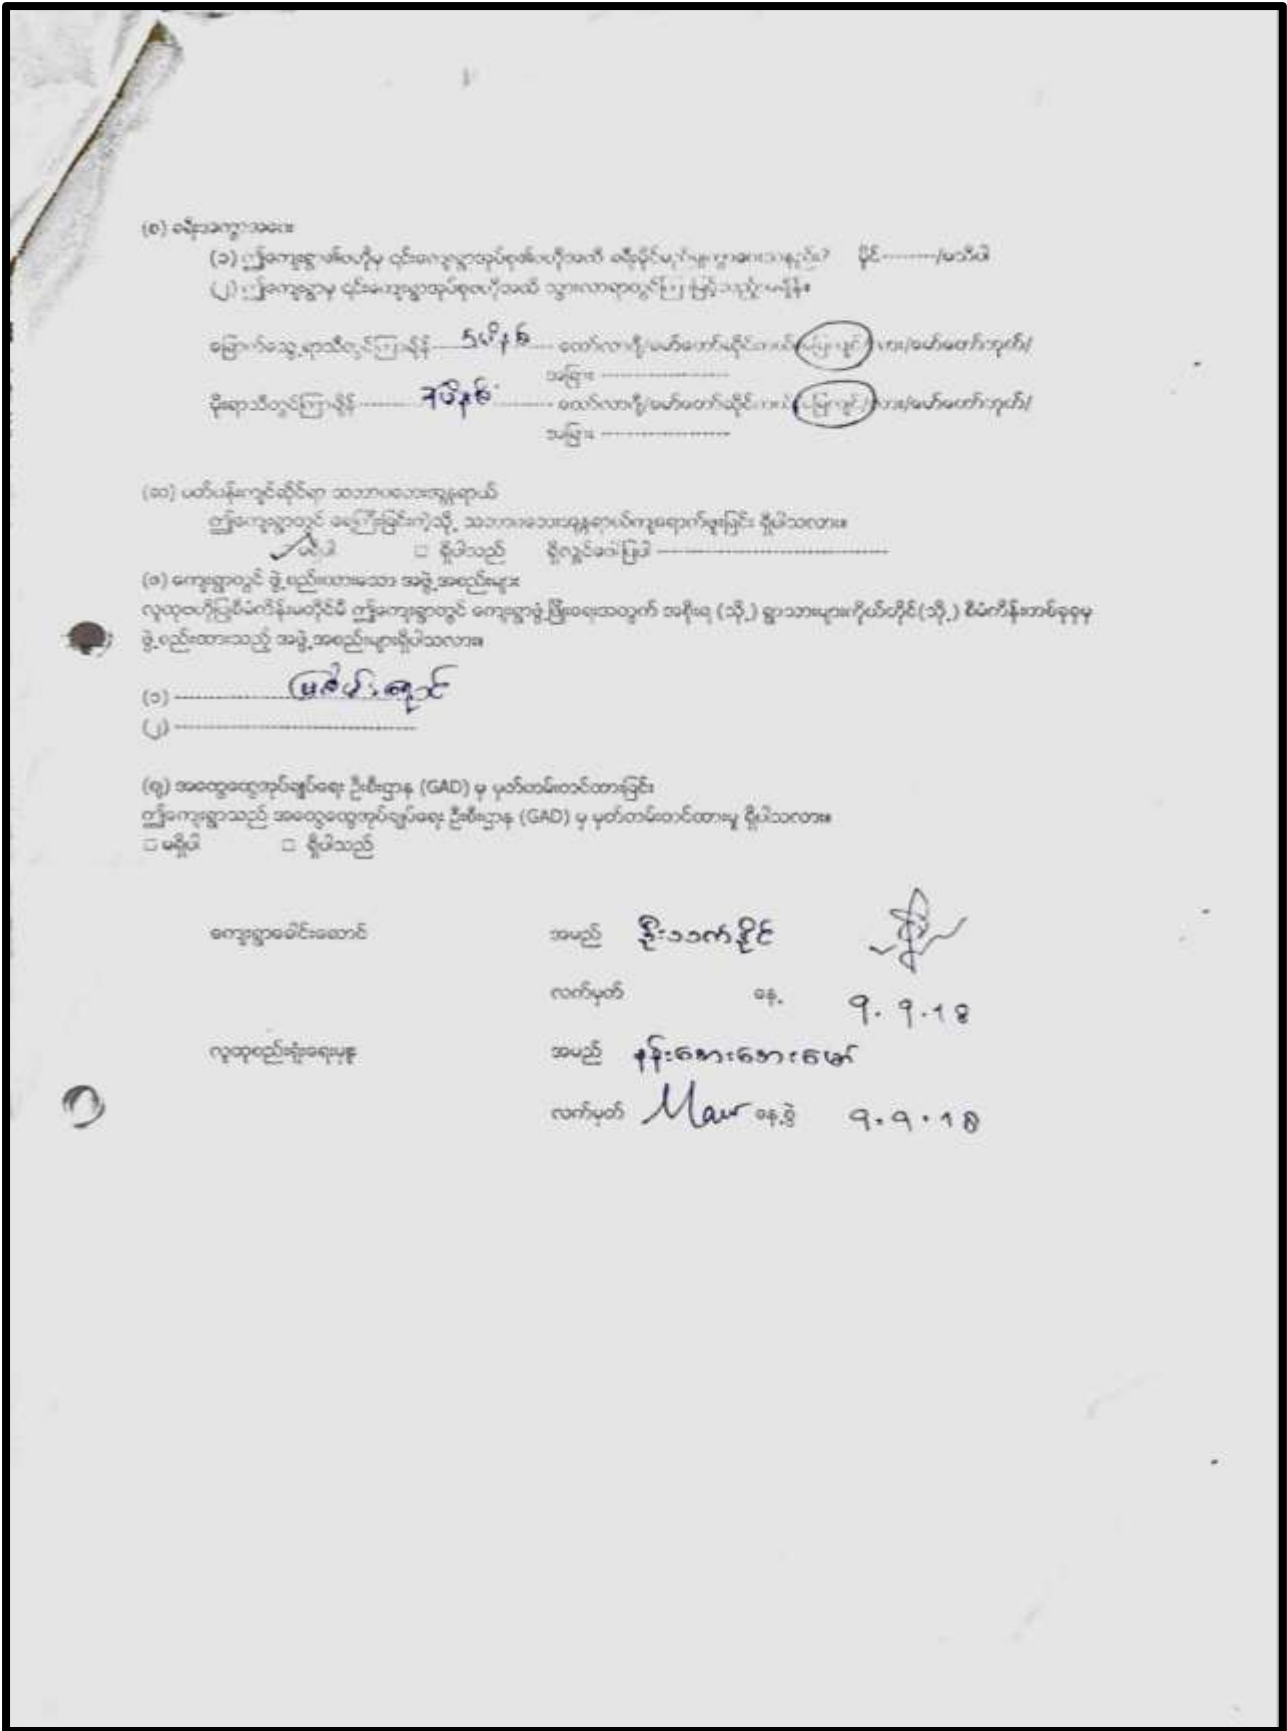 (စ) ခရီးအကွာအဝေး
(၁) ဤကျေးရွာ၏ဗဟိုမှ ၎င်းကျေးရွာအုပ်စု၏ဗဟိုအထိ ခရီးမိုင်မည်မျှကွာဝေးသနည်း? မိုင်---------/မသိပါ
(၂) ဤကျေးရွာမှ ၎င်းကျေးရွာအုပ်စုဗဟိုအထိ သွားလာရာတွင်ကြာမြင့်သည့်အချိန်။
ခြောက်သွေ့ရာသီတွင်ကြာချိန် ----- ၅မိနစ် ----- ထော်လာဂျီ/မော်တော်ဆိုင်ကယ်/ခြေလျင်/ကား/မော်တော်ဘုတ်/
အခြား --------------------
မိုးရာသီတွင်ကြာချိန် --------- ၇မိနစ် --------- ထော်လာဂျီ/မော်တော်ဆိုင်ကယ်/ခြေလျင်/ကား/မော်တော်ဘုတ်/
အခြား --------------------
(ဆ) ပတ်ဝန်းကျင်ဆိုင်ရာ သဘာဝဘေးအန္တရာယ်
ဤကျေးရွာတွင် ရေကြီးခြင်းကဲ့သို့ သဘာဝဘေးအန္တရာယ်ကျရောက်ဖူးခြင်း ရှိပါသလား။
✓ မရှိပါ □ ရှိပါသည် ရှိလျှင်ဖော်ပြပါ ------------------------------------
(ဇ) ကျေးရွာတွင် ဖွဲ့စည်းထားသော အဖွဲ့အစည်းများ
လူထုဗဟိုပြုစီမံကိန်းမတိုင်မီ ဤကျေးရွာတွင် ကျေးရွာဖွံ့ဖြိုးရေးအတွက် အစိုးရ (သို့) ရွာသားများကိုယ်တိုင်(သို့) စီမံကိန်းတစ်ခုခုမှ
ဖွဲ့စည်းထားသည့် အဖွဲ့အစည်းများရှိပါသလား။
(၁) -------- မြစိမ်းရောင်
(၂) --------------------------------------
(ဈ) အထွေထွေအုပ်ချုပ်ရေး ဦးစီးဌာန (GAD) မှ မှတ်တမ်းတင်ထားခြင်း
ဤကျေးရွာသည် အထွေထွေအုပ်ချုပ်ရေး ဦးစီးဌာန (GAD) မှ မှတ်တမ်းတင်ထားမှု ရှိပါသလား။
□ မရှိပါ □ ရှိပါသည်
ကျေးရွာခေါင်းဆောင် အမည် ဦးသက်နိုင်
လက်မှတ် နေ့ ၅.၅.၁၉
လူထုစည်းရုံးရေးမှူး အမည် နန်းအေးအေးမော်
လက်မှတ် Maw နေ့စွဲ